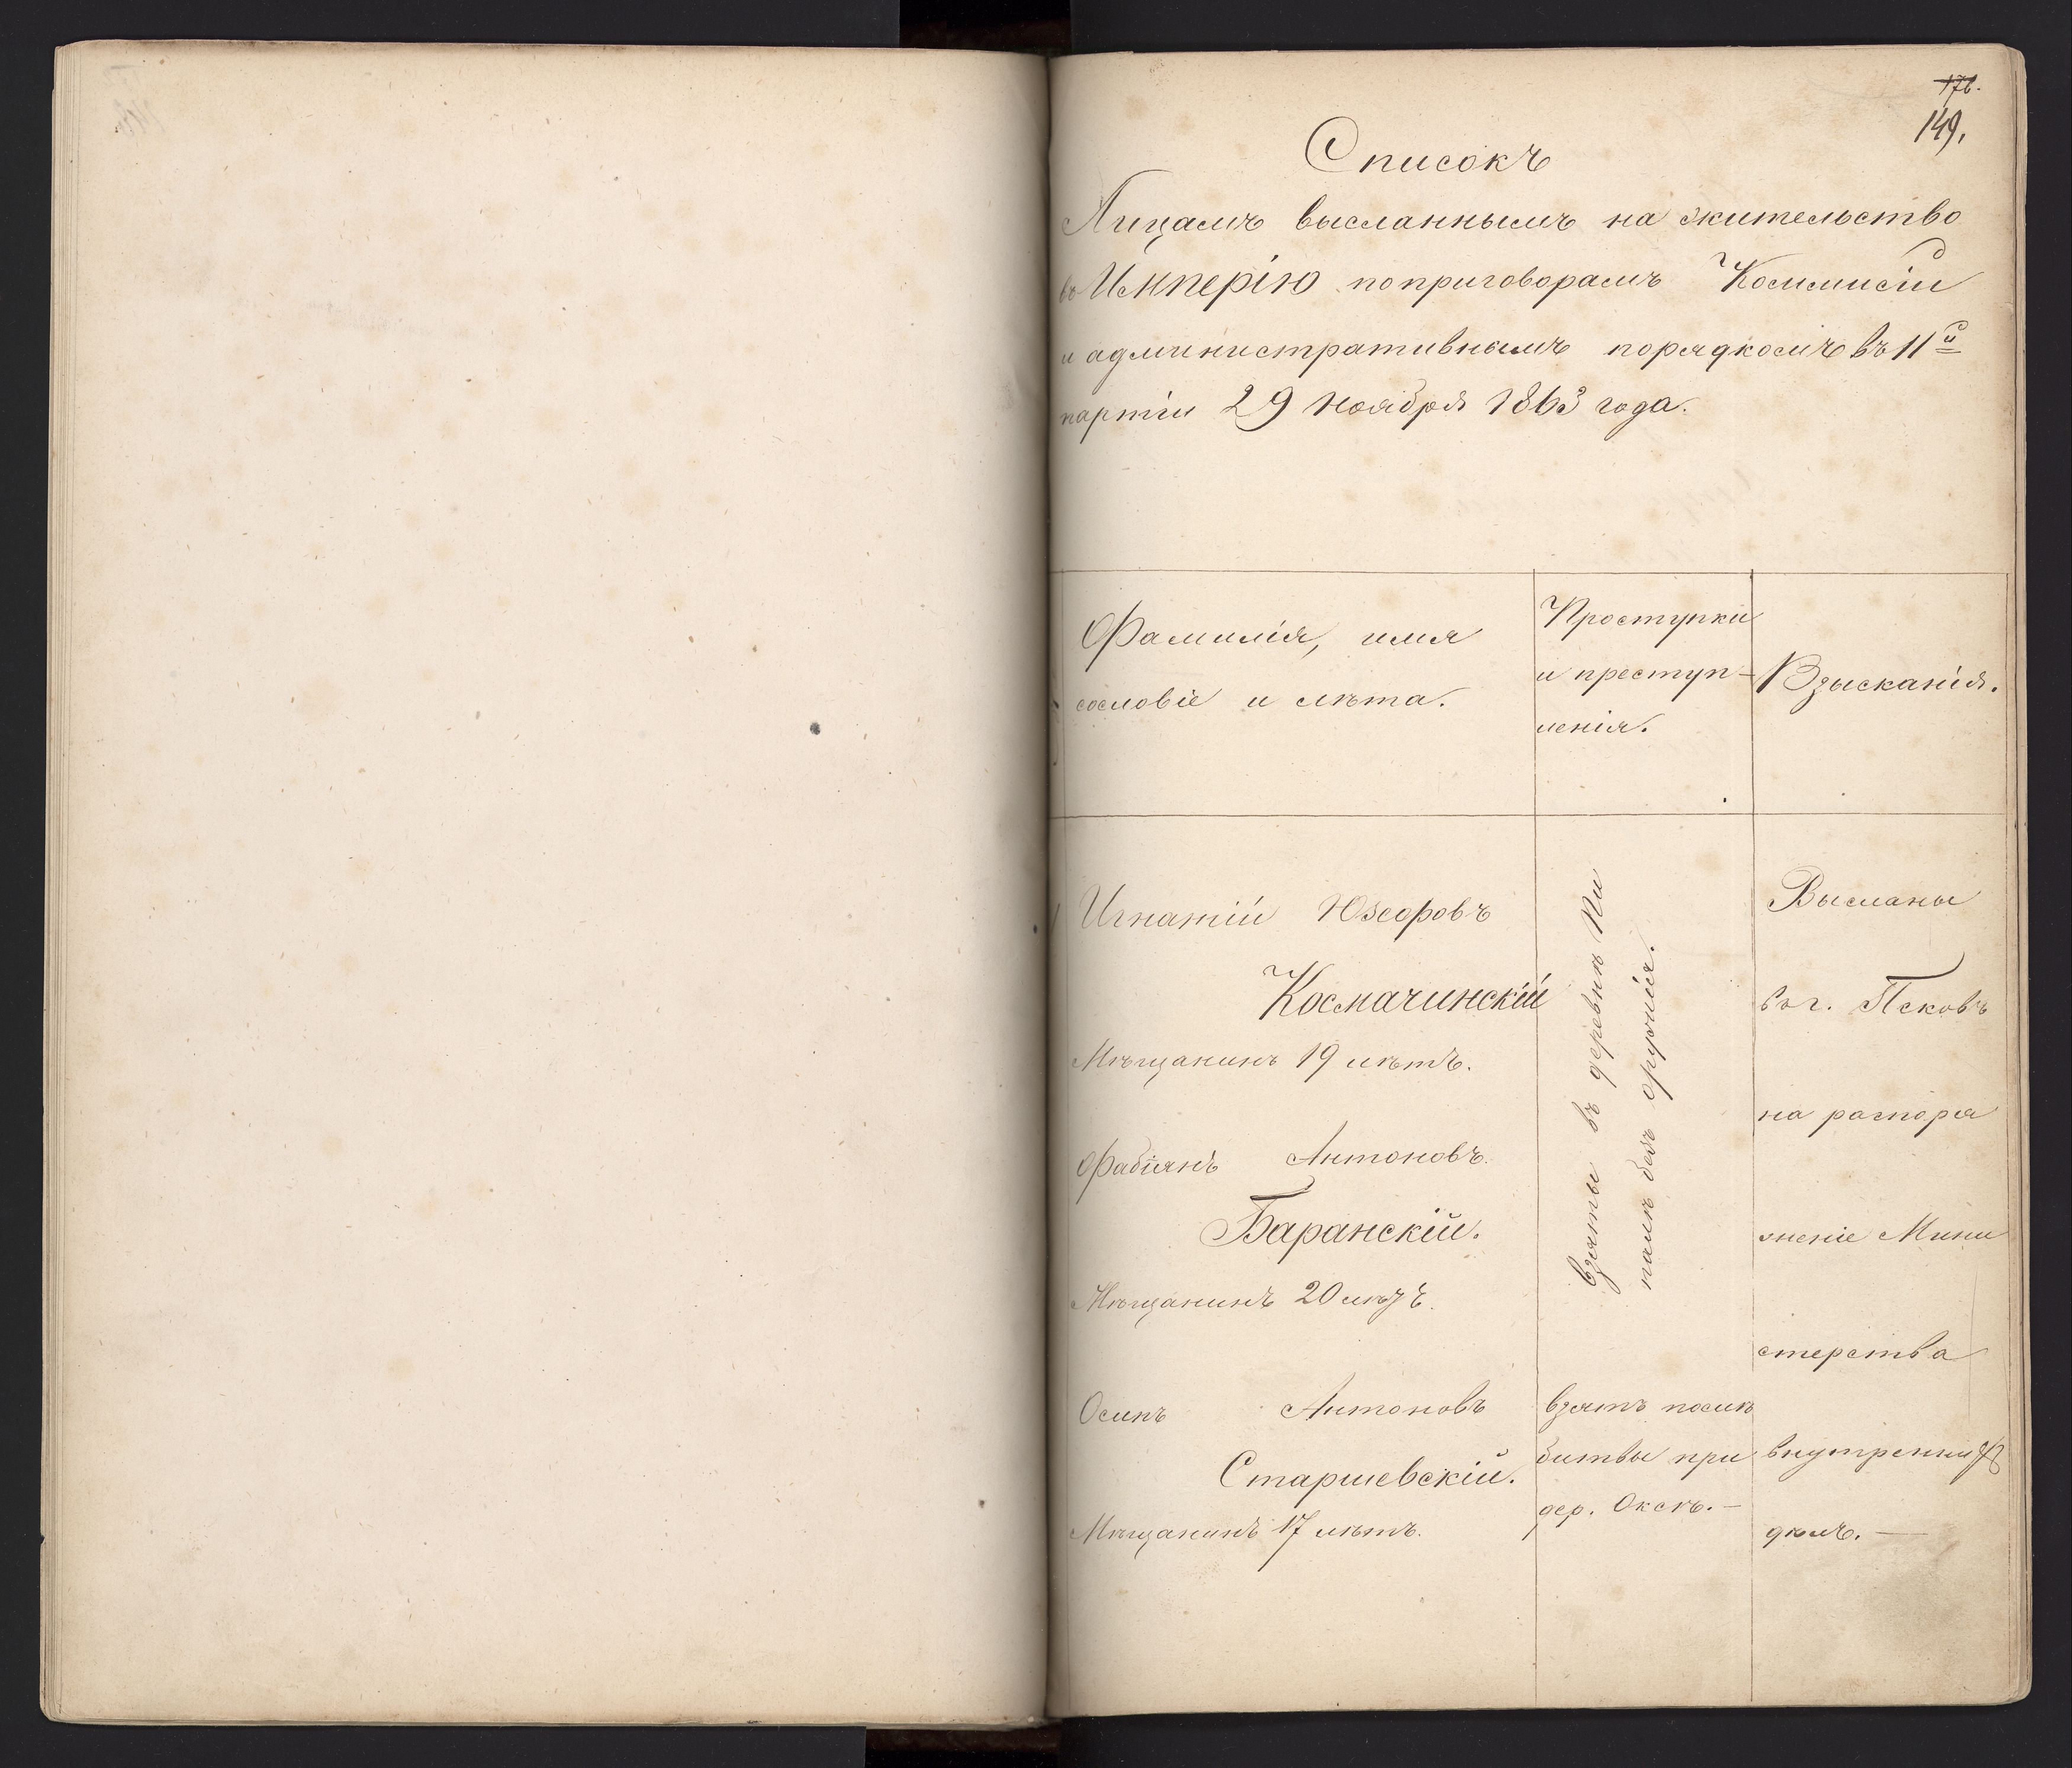 176.
149.
Списокъ
Лицамъ высланнымъ на жительство
въ Имперію по приговорамъ Коммисіи
и административнымъ порядкомъ въ 11й
партіи 29 Ноября 1863 года.
Фамилія, имя
сословіе и лѣта.
Проступки
и преступ-
ленія.
Взысканія.
Игнатій Юзефовъ
Космачинскій
Мѣщанинъ 19 лѣтъ.
Фабіянъ Антоновъ.
Баранскій.
Мѣщанинъ 20 лѣтъ.
Осипъ Антоновъ
Старшевскій.
Мѣщанинъ 17 лѣтъ.
Взяты въ деревнѣ
безъ оружія.
взятъ послѣ
битвы при
дер. Окск.—
Высланы
въ г. Псковъ
на распоря
женіе Мини
стерства
внутреннихъ
дѣлъ.—